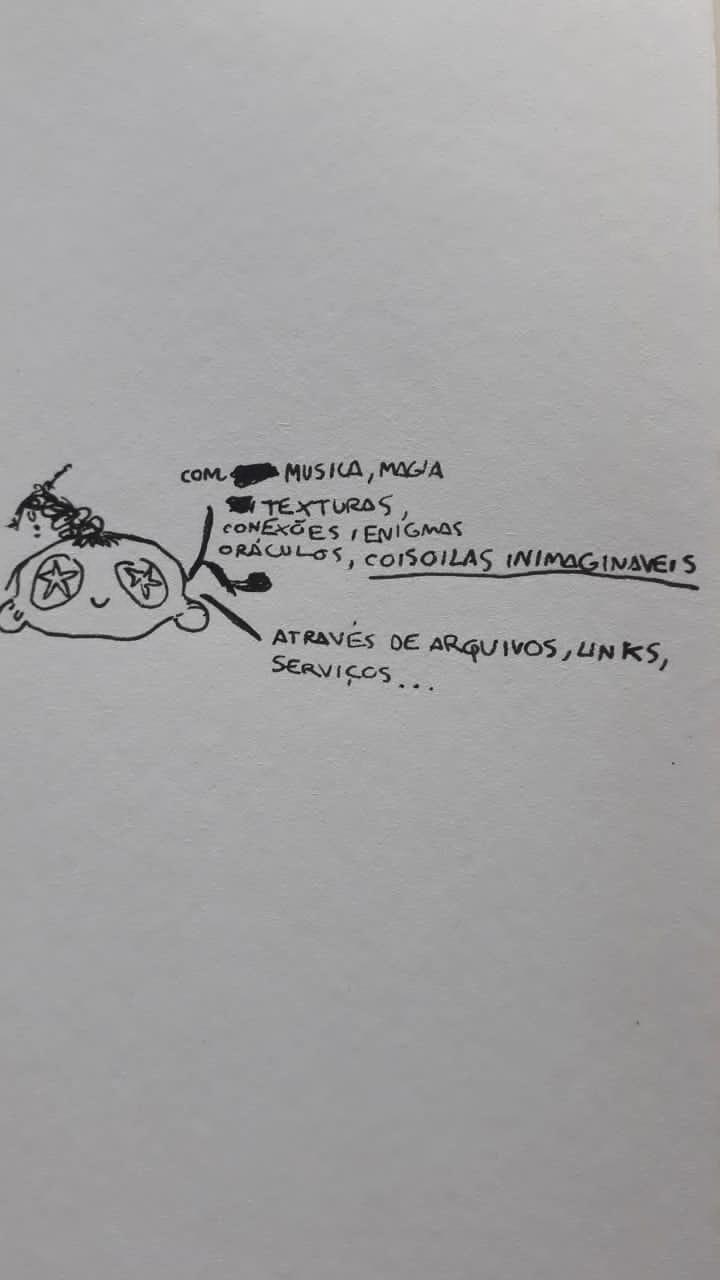 COM MUSICA, MAGIA
TEXTURAS,
CONEXÕES, ENIGMAS
ORÁCULOS, COISOILAS INIMAGINAVEIS
ATRAVÉS DE ARQUIVOS, LINKS,
SERVIÇOS...